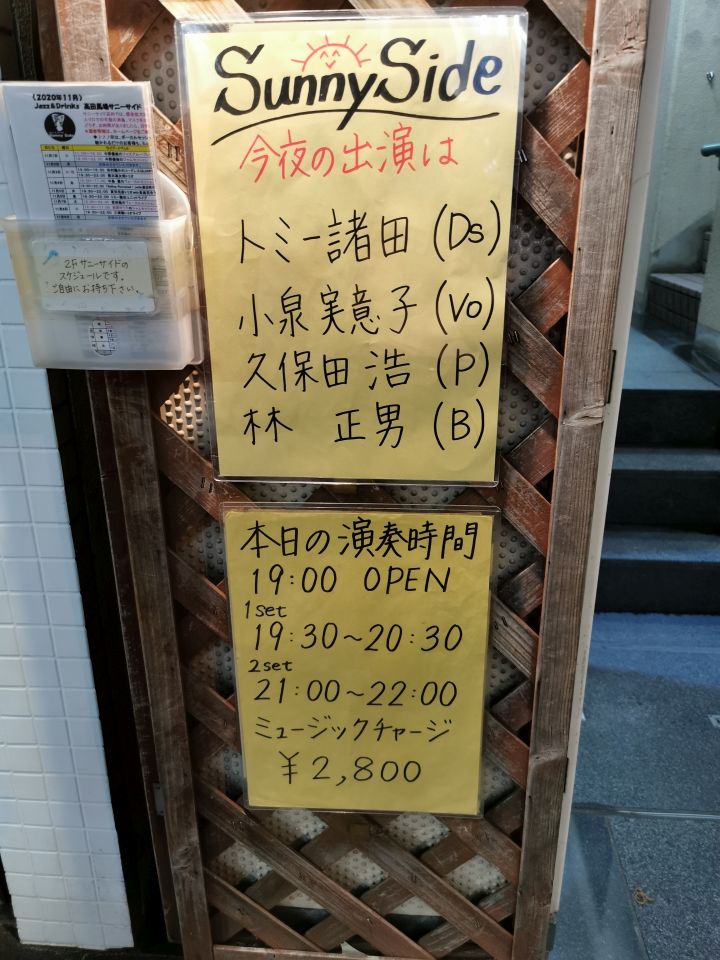 Sunny Side
今夜の出演は
トミー諸田 (Ds)
小泉実意子 (Vo)
久保田 浩 (P)
林 正男 (B)
本日の演奏時間
19:00 OPEN
1set
19:30～20:30
2set
21:00～22:00
ミュージックチャージ
¥2,800
(2020年11月)
Jazz&Drinks 高田馬場サニーサイド
2F サニーサイドの
スケジュールです。
ご自由にお持ち下さい。